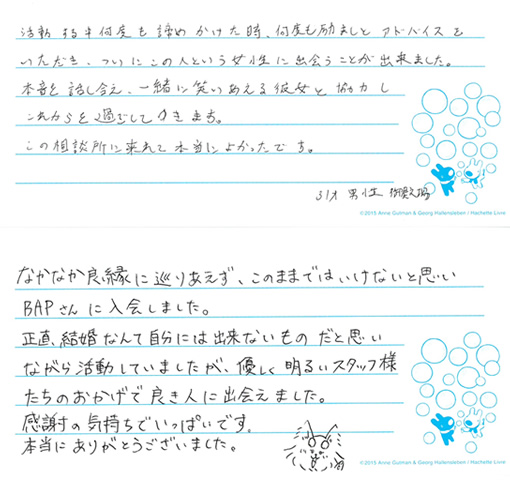 活動する中何度も諦めかけた時、何度も励ましと アドバイスを
いただき、ついにこの人という女性に出会うことが出来ました。
本音を話し合え、一緒に笑いあえる彼女と協力し
これからを過ごしていきます。
この相談所に来れて本当によかったです。
31才 男性
©2015 Anne Gutman & Georg Hallensleben / Hachette Livre
なかなか良縁に巡りあえず、このままではいけないと思い
BAPさんに入会しました。
正直、結婚なんて自分には出来ないものだと思い
ながら活動していましたが、優しく明るいスタッフ様
たちのおかげで良き人に出会えました。
感謝の気持ちでいっぱいです。
本当にありがとうございました。
©2015 Anne Gutman & Georg Hallensleben / Hachette Livre